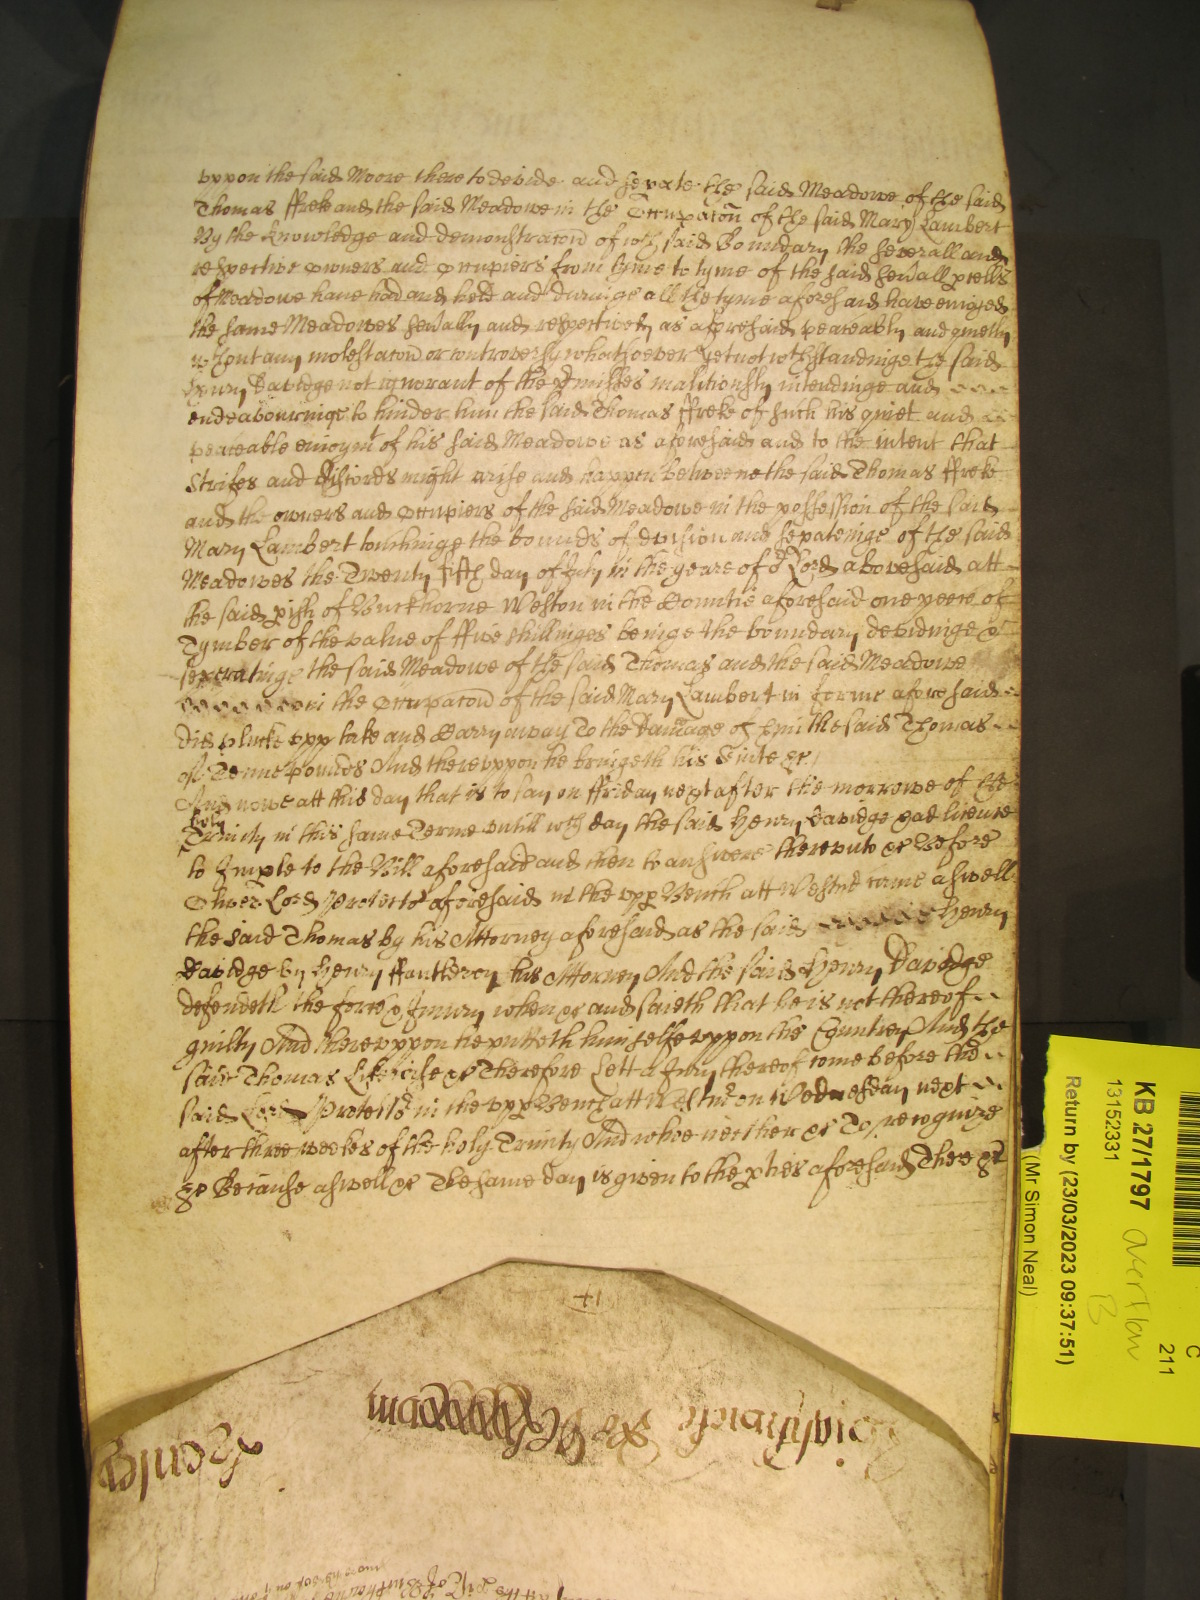 vppon the said Moore there to devide and sepate the said Meadowe of the said
Thomas ffreke and the said Meadowe in the Occupacon of the said Mary Lambert
By the knowledge and demonstracon of wch said Boundary the severall and
respective owners and occupiers from tyme to tyme of the said sevall pcells
of Meadowe have had and held and duringe all the tyme aforesaid have enioyed
the same Meadowes sevally and respectively as aforesaid peaceably and quietly
wthout any molestacon or controversy whatsoever yet not wthstandinge the said
Henry Davidge not ignorant of the pmisses malitiously intendinge and
endeavouringe to hinder him the said Thomas ffreke of such his quiet and
peaceable enioymt of his said Meadowe as aforesaid and to the intent that
Strifes and discords might arise and happen betweene the said Thomas ffreke
and the owners and occupiers of the said Meadowe in the possession of the said
Mary Lambert touchinge the bounds of devision and sepateinge of the said
Meadowes the Twenty fifth day of July in the yeare of or Lord abovesaid att
the said pish of Buckhorne Weston in the Countie aforesaid one peece of
Tymber of the value of ffive shillinges beinge the boundary devidinge &
seperatinge the said Meadowe of the said Thomas and the said Meadowe
in the Occupacon of the said Mary Lambert in forme aforesaid
did plucke vpp take and Carry away To the damage of him the said Thomas
of Tenne pounds And therevppon he bringeth his Suite &c
And nowe att this day that is to say on ffriday next after the morrowe of the
holy
Trinity in this same Terme vntill wch day the said Henry Davidge had licence
to Imple to the Bill aforesaid and then to answere therevnto &c Before
Oliver Lord Protector aforesaid in the vpp Bench att Westmr came aswell
the said Thomas by his Attorney aforesaid as the said Henry
Davidge by Henry ffantleroy his Attorney And the said Henry Davidge
defendeth the force & Iniury when &c and saieth that he is not thereof
guilty And therevppon he putteth himselfe vppon the Countrey And the
said Thomas Likewise &c Therefore Lett a Jury thereof come before the
said Lord Protector in the vpp Bench att Westmr on Wednesday next
after three weekes of the holy Trinity And whoe neither &c To recognize
&c Because aswell &c The same day is given to the pties aforesaid There &c
KB 27/1797 overflow
13152331
B
Return by (23/03/2023 09:37:51)
(Mr Simon Neal)
C
211